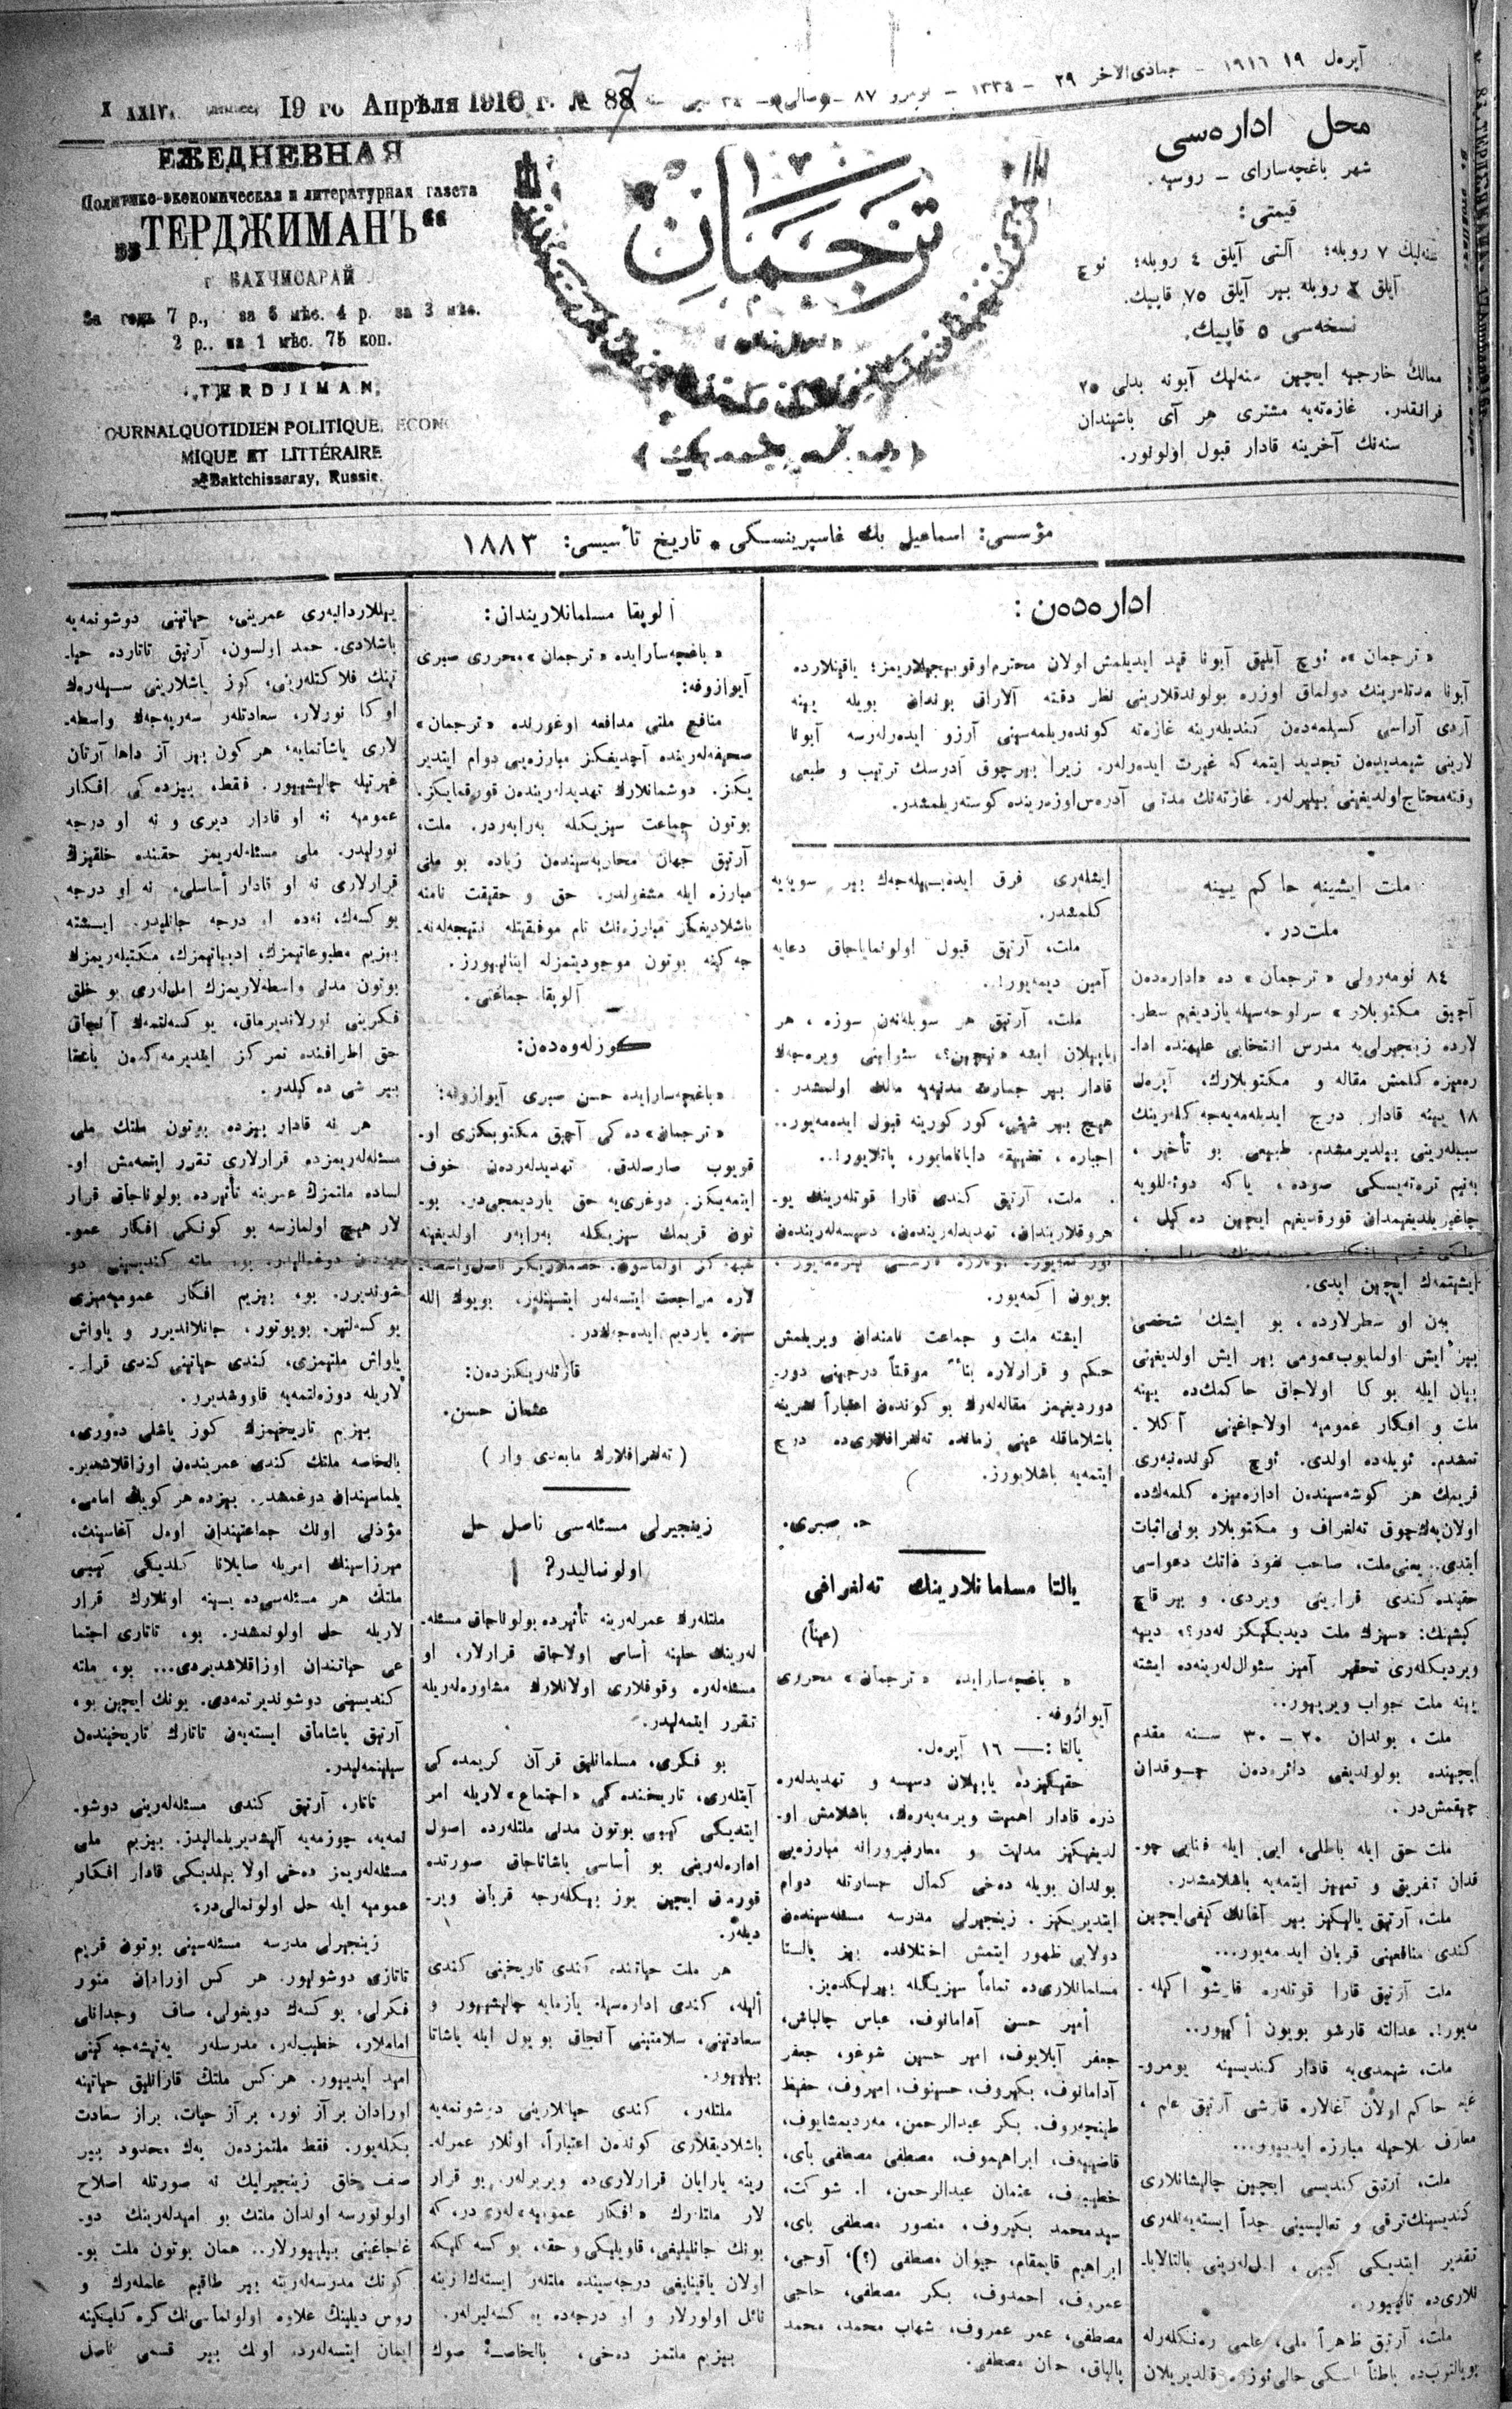 آپرەل ١٩ ١٩١٦ - جماذی‌الآخر ٢٩ - ١٣٣٤ - نومرو ٨٧
19 го Апрѣля 1916 г. № 88
7
ЕЖЕДНЕВНАЯ
Политико-экономическая и литературная газета
„ТЕРДЖИМАНЪ“
г БАХЧИСАРАЙ
За годъ 7 р., за 6 мѣс. 4 р. за 3 мѣс.
2 р.. на 1 мѣс. 75 коп.
„TERDJIMAN„
OURNAL QUOTIDIEN POLITIQUE, ECONO
MIQUE ET LITTÉRAIRE
a Baktchissaray, Russie.
ترجمان
محل اداره‌سی
شهر باغچه‌سارای – روسیه.
قیمتی:
سنه‌لیك ٧ روبله؛ آلتی آیلق ٤ روبله؛ ئوچ
آیلق ٢ روبله بیر آیلق ٧٥ قاپیك.
نسخه‌سی ٥ قاپیك.
ممالك خارجیه ایچین سنه‌لیك آبونه بدلی ٢٥
فرانقدر. غازه‌ته‌یه مشتری هر آی باشیندان
سنه‌نك آخرینه قادار قبول اولونور.
مؤسسی: اسماعیل بك غاسپرینسكی • تاریخ تأسیسی: ١٨٨٣
اداره‌ده‌ن:
«ترجمان»ه ئوچ آیلیق آبونا قید ایدیلمش اولان محترم اوقویوجیلاریمز؛ یاقینلارده
آبونا مدتله‌رینك دولماق اوزره بولوندقلارینی نظر دقته آلاراق بوندان بویله یینه
آردی آراسی كسیلمه‌ده‌ن كندیله‌رینه غازه‌ته كونده‌ریلمه‌سینی آرزو ایده‌رله‌رسه آبونا
لارینی شیمدیده‌ن تجدید ایتمه‌كه غیرت ایده‌رله‌ر. زیرا بیرچوق آدرسك ترتیب و طبعی
وقته محتاج اولدیغینی بیلیرله‌ر. غازته‌نك مدتی آدره‌س اوزه‌رینده كوسته‌ریلمشدر.
ملت ایشینه حاكم یینه
ملت‌در.
٨٤ نومه‌رولی «ترجمان» ده «اداره‌ده‌ن
آچیق مكتوبلار» سرلوحه‌سیله یازدیغیم سطر-
لارده زینجیرلی‌یه مدرس انتخابی علیهنده ادا-
ره‌میزه كلمش مقاله و مكتوبلارك، آپره‌ل
١٨ یینه قادار درج ایدیله‌مه‌یه‌جه‌كله‌رینك
سببله‌رینی بیلدیرمشدم. طبیعی بو تأخیر،
ایشیتمه‌ك ایچین ایدی.
به‌ن او سطرلارده، بو ایشك شخصی
بیر ایش اولمایوب عمومی بیر ایش اولدیغینی
بیان ایله بوكا اولاجاق حاكمك‌ده یینه
ملت و افكار عمومیه اولاجاغینی آكلا-
تمشدم. ئویله‌ده اولدی. ئوچ كونده‌نبه‌ری
قریمك هر كوشه‌سینده‌ن اداره‌میزه كلمه‌كده
اولان پك‌چوق ته‌لغراف و مكتوبلار بونی اثبات
ایتدی.. یعنی ملت، صاحب نفوذ ذاتك دعواسی
حقینده كندی قرارینی ویردی. و بیر قاچ
كیشینك: «سزك ملت دیدیكیكز نه‌در؟» دییه
ویردیكله‌ری تحقیر آمیز سئوال‌له‌رینه‌ده ایشته
یینه ملت جواب ویریور..
ملت، بوندان ٢٠ – ٣٠ سنه مقدم
ایچینده بولوندیغی دائره‌ده‌ن چوقدان
چیقمش‌در.
ملت حق ایله باطلی، ایی ایله فنایی چو-
قدان تفریق و تمییز ایتمه‌یه باشلامشدر.
ملت، آرتیق یالیكیز بیر آغانك كیفی ایچین
كندی منافعینی قربان ایده‌مه‌یور...
ملت آرتیق قارا قوتله‌ره قارشو اكیله-
مه‌یور!. عدالته قارشو بویون اكییور..
ملت، شیمدی‌یه قادار كندیسینه یومرو-
غیله حاكم اولان آغالاره قارشی آرتیق علم،
معارف سلاحیله مبارزه ایدییور...
ملت، آرتیق كندیسی ایچین چالیشانلاری
كندیسینك ترقی و تعالیسینی جداً ایسته‌یه‌نله‌ری
تقدیر ایتدیكی كیبی،
ملت، آرتیق ظاهراً ملی، علمی ره‌نكله‌رله
بویانوب‌ده باطناً اسكی حالی ئوزره قالدیریلان
ایشله‌ری فرق ایده‌بیله‌جه‌ك بیر سویه‌یه
كلمشدر.
ملت، آرتیق قبول اولونمایاجاق دعایه
آمین دیمه‌یور!..
ملت، آرتیق هر سویله‌نه‌ن سوزه، هر
یاپیلان ایشه «نیچین؟» سئوالینی ویره‌جه‌ك
قادار بیر جسارت مدنیه‌یه مالك اولمشدر.
هیچ بیر شیئی، كور كورینه قبول ایده‌مه‌یور..
اجباره، تضییقه دایانامایور، پاتلایور!..
ملت، آرتیق كندی قارا قوتله‌رینك یو-
مروقلاریندان، تهدیدله‌رینده‌ن، دسیسه‌له‌رینده‌ن
بویون اكمه‌یور.
ایشته ملت و جماعت نامندان ویریلمش
حكم و قرارلاره بناءً موقتاً درجینی دور-
دوردیغیمز مقاله‌له‌رك بو كونده‌ن اعتباراً نشرینه
باشلاماقله عینی زمانده ته‌لغرافلاری‌ده درج
ایتمه‌یه باشلایورز.
ح. صبری.
یالتا مسلمانلارینك ته‌لغرافی
(عیناً)
«باغچه‌سارایده «ترجمان» محرری
آیوازوفه.
یالتا: — ١٦ آپره‌ل.
حقیكیزده یاپیلان دسیسه و تهدیدله‌ره
ذره قادار اهمیت ویرمه‌یه‌رك، باشلامش او-
لدیغیكیز مدنیت و معارفپرورانه مبارزه‌یی
بوندان بویله ده‌خی كمال جسارتله دوام
ایتدیریكیز. زینجیرلی مدرسه مسئله‌سینده‌ن
دولایی ظهور ایتمش اختلافده بیز یالتا
مسلمانلاری‌ده تماماً سیزیكله بیرلیكده‌یز.
أمیر حسن آدامانوف، عباس چالباش،
جعفر آبلایوف، امیر حسین شوغو، جعفر
آدامانوف، بكیروف، حسینوف، امیروف، حفیظ
بكر عبدالرحمن،
ابراهیموف، مصطفی مصطفی بای،
عثمان عبدالرحمن، ا. شوكت،
سیدمحمد بكیروف، منصور مصطفی بای،
ابراهیم قایمقام، جیوان مصطفی (؟)، آوجی،
عمروف، احمدوف، بكر مصطفی، حاجی
مصطفی، عمر عمروف، شهاب محمد، محمد
یالباق، جان مصطفی.
آلوپقا مسلمانلاریندان:
«باغچه‌سارایده «ترجمان» محرری صبری
آیوازوفه:
منافع ملتی مدافعه اوغورنده «ترجمان»
صحیفه‌له‌رینده آچدیغیكز مبارزه‌یی دوام ایتدیر
یكز. دوشمانلارك تهدیدله‌رینده‌ن قورقمایكز.
بوتون جماعت سیزیكله به‌رابه‌ردر. ملت،
آرتیق جهان محاربه‌سینده‌ن زیاده بو ملی
مبارزه ایله مشغولدر. حق و حقیقت نامنه
باشلادیغیكز مبارزه‌نك تام موفقیتله نتیجه‌له‌نه-
جه‌كینه بوتون موجودیتمزله اینانییورز.
آلوپقا جماعتی.
كوزله‌وه‌ده‌ن:
«باغچه‌سارایده حسن صبری آیوازوفه:
«ترجمان»ده‌كی آچیق مكتوبكزی او-
قویوب صارصلدق. تهدیدله‌رده‌ن خوف
ایتمه‌یكز. دوغری‌یه حق یاردیمجی‌در. بو-
تون قریمك سیزیكله به‌رابه‌ر اولدیغینه
لاره مراجعت ایتسه‌لر ایتسینلر، بویوك الله
سیزه یاردیم ایده‌جه‌كدر.
قارئله‌ریكزده‌ن:
عثمان حسن.
(ته‌لغرافلارك مابعدی وار)
زینجیرلی مسئله‌سی ناصل حل
اولونمالیدر؟
ملتله‌رك عمرله‌رینه تأثیرده بولوناجاق مسئله-
له‌رینك حلینه أساس اولاجاق قرارلار، او
مسئله‌له‌ره وقوفلاری اولانلارك مشاوره‌له‌ریله
تقرر ایتمه‌لیدر.
بو فكری، مسلمانلیق قرآن كریمده‌كی
آیتله‌ری، تاریخنده‌كی «اجتماع»لاریله امر
ایتدیكی كیبی بوتون مدنی ملتله‌رده اصول
اداره‌له‌رینی بو أساسی یاشاتاجاق صورتده
قورمق ایچین یوز بیكله‌رجه قربان ویر-
دیله‌ر.
هر ملت حیاتنده كندی تاریخینی كندی
ألیله، كندی اداره‌سیله یازمایه چالیشییور و
سعادتینی، سلامتینی آنجاق بو یول ایله یاشاتا
بیلییور.
ملتله‌ر، كندی حیاتلارینی دوشونمه‌یه
باشلادیقلاری كونده‌ن اعتباراً، اونلار عمرله-
رینه یارایان قرارلاری‌ده ویربرله‌ر. بو قرار
لار ملتله‌رك «افكار عمومیه»له‌ری‌در، كه
بونك جانلیلیغی، قاویلیكی و حقه، یوكسه‌كلیكه
اولان یاقینلیغی درجه‌سینده ملتله‌ر ایسته‌كله‌رینه
نائل اولورلار و او درجه‌ده یوكسه‌لیرله‌ر.
بیزیم ملتمز ده‌خی، بالخاصه صوك
ییللاردانبه‌ری عمرینی، حیاتینی دوشونمه‌یه
باشلادی. حمد اولسون، آرتیق تاتارده حیا-
تینك فلاكتله‌رینی، كوز یاشلارینی سیله‌ره‌ك
اوكا نورلار، سعادتله‌ر سه‌رپه‌جه‌ك واسطه-
لاری یاشاتمایه، هر كون بیر آز داها آرتان
غیرتیله چالیشییور. فقط، بیزده‌كی افكار
عمومیه نه او قادار دیری و نه او درجه
نورلیدر. ملی مسئله‌له‌ریمز حقنده خلقیزك
قرارلاری نه او قادار أساسلی، نه او درجه
یوكسه‌ك، نه‌ده او درجه جانلیدر. ایشته
بیزیم مطبوعاتیمزك، ادبیاتیمزك، مكتبله‌ریمزك
بوتون مدنی واسطه‌لاریمزك امل‌له‌ری بو خلق
فكرینی نورلاندیرماق، یوكسه‌لتمه‌ك آنجاق
حق اطرافنده تمركز ایتدیرمه‌كده‌ن باشقا
بیر شی ده‌كیلدر.
هر نه قادار بیزده بوتون ملتك ملی
مسئله‌له‌ریمزده قرارلاری تقرر ایتمه‌مش او-
لساده ملتمزك عمرینه تأثیرده بولوناجاق قرار
لار هیچ اولمازسه بو كونكی افكار عمو-
میه‌ده‌ن دوغمالیدر. بو، ملته كندیسینی دو
شوندیرر. بو، بیزیم افكار عمومیه‌میزی
یوكسه‌لتیر. بویوتور، جانلاندیرر و یاواش
یاواش ملتیمزی، كندی حیاتینی كندی قرار-
لاریله دوزه‌لتمه‌یه قاووشدیرر.
بیزیم تاریخیمزك كوز یاشلی ده‌وری،
بالخاصه ملتك كندی عمرینده‌ن اوزاقلاشدیر-
یلماسیندان دوغمشدر. بیزده هر كویك امامی،
مؤذنی اونك جماعتیندان اول آغاسینك،
میرزاسینك امریله صایلانا كلدیكی كیبی
ملتك هر مسئله‌سی‌ده یینه اونلارك قرار
لاریله حل اولونمشدر. بو، تاتاری اجتما
عی حیاتندان اوزاقلاشدیردی... بو، ملته
كندیسینی دوشوندیرتمه‌دی. بونك ایچین بو،
آرتیق یاشاماق ایسته‌یه‌ن تاتارك تاریخینده‌ن
سیلینمه‌لیدر.
تاتار، آرتیق كندی مسئله‌له‌رینی دوشو-
نمه‌یه، چوزمه‌یه آلیشدیریلمالیدر. بیزیم ملی
مسئله‌له‌ریمز ده‌خی اولا بیلدیكی قادار افكار
عمومیه ایله حل اولونمالی‌در.
زینجیرلی مدرسه مسئله‌سینی بوتون قریم
تاتاری دوشونییور. هر كس اورادان منور
فكرلی، یوكسه‌ك دویغولی، صاف وجدانلی
امام‌لار، خطیب‌له‌ر، مدرسله‌ر یه‌تیشه‌جه‌كینی
امید ایدییور. هر كس ملتك قارانلیق حیاتینه
اورادان براز نور، براز حیات، براز سعادت
بكله‌یور. فقط ملتمزده‌ن پك محدود بیر
صنف خلق زینجیرلینك نه صورتله اصلاح
اولونورسه اوندان ملتك بو امیدله‌رینك دو-
غاجاغینی بیلییورلار.. همان بوتون ملت بو-
كونك مدرسه‌له‌رینه بیر طاقیم علمله‌رك و
روس دیلینك علاوه اولونماسی‌نك كره‌كلیكینه
ایمان ایتسه‌له‌رده، اونك بیر قسمی ناصل